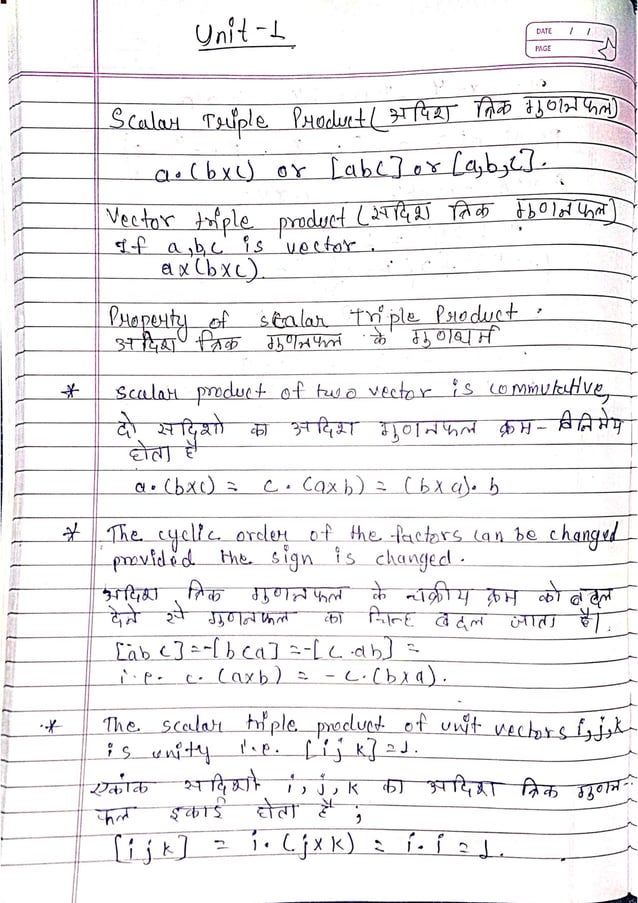 Unit-1
DATE / /
PAGE
Scalar Triple Product (अदिश त्रिक गुणनफल)
a.(b×c) or [abc] or [a,b,c].
Vector triple product (सदिश त्रिक गुणनफल)
If a,b,c is vector.
a×(b×c)
Property of scalar triple Product.
अदिश त्रिक गुणनफल के गुणधर्म
* scalar product of two vector is commutative,
दो सदिशो का अदिश गुणनफल क्रम-विनिमेय
होता है
a.(b×c) = c.(a×b) = (b×a).b
* The cyclic order of the factors can be changed
provided the sign is changed.
अदिश त्रिक गुणनफल के चक्रीय क्रम को बदल
देने से गुणनफल का चिन्ह बदल जाता है।
[abc]=-[bca]=-[c.ab]=
i.e. c.(a×b) = -c.(b×a).
* The scalar triple product of unit vectors i,j,k
is unity i.e. [ijk]=1.
एकांक सदिशो i, j, k का अदिश त्रिक गुणन-
फल इकाई होता है;
[ijk] = i.(j×k) = i.i=1.